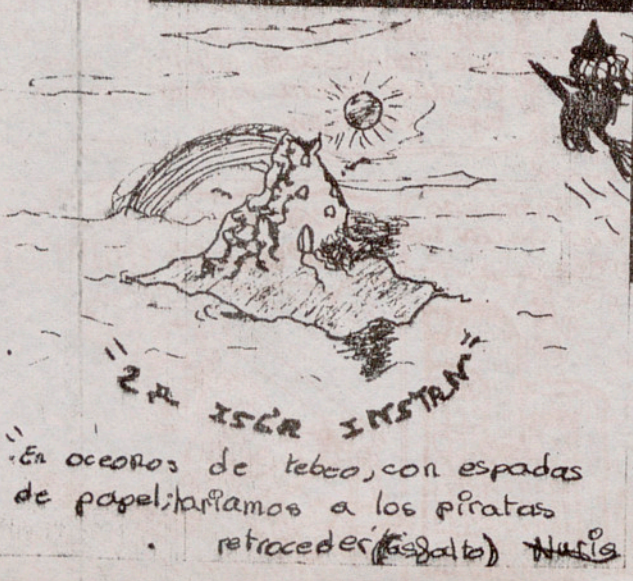 "LA ISLA INSTAN"
"En oceanos de tebeo, con espadas
de papel; hariamos a los piratas
retroceder" (Asfalto) Nuria